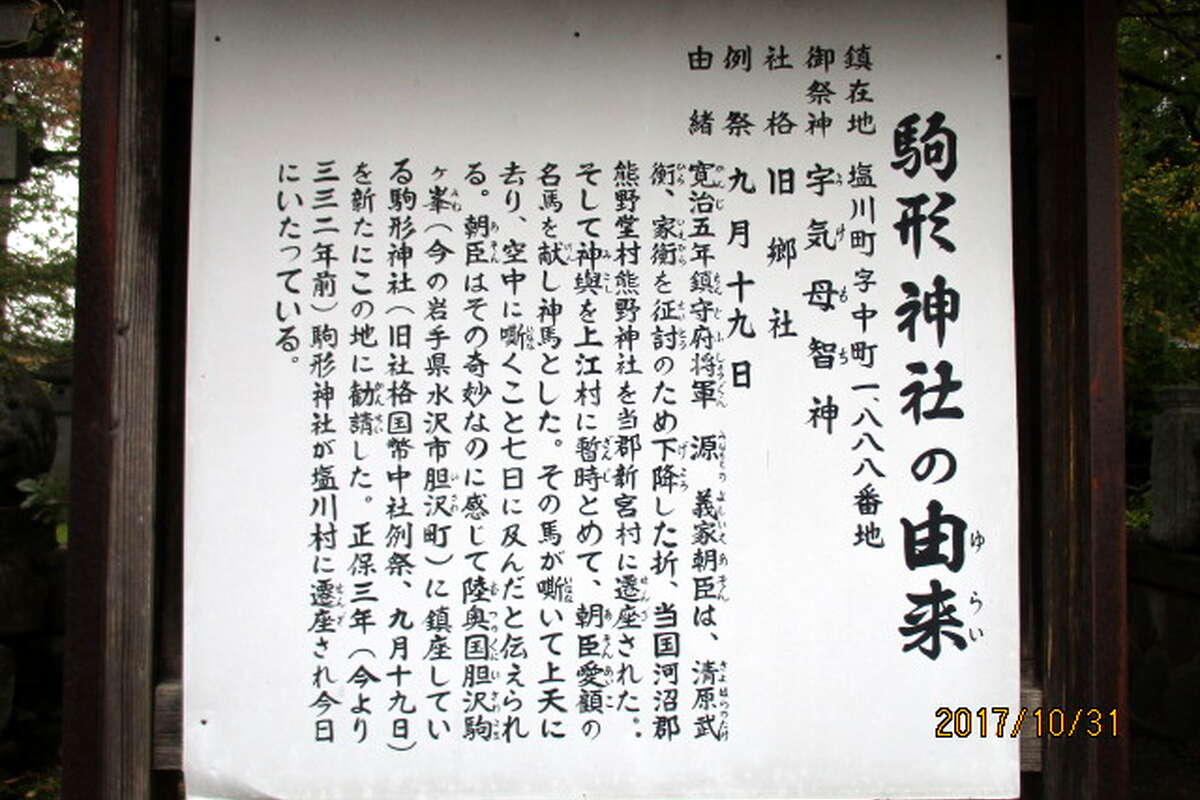 駒形神社の由来
鎮在地 塩川町字中町一、八八八番地
御祭神 宇気母智神
社格 旧郷社
例祭 九月十九日
由緒 寛治五年鎮守府将軍 源 義家朝臣は、清原武
衡、家衡を征討のため下降した折、当国河沼郡
熊野堂村熊野神社を当郡新宮村に遷座された。
そして神輿を上江村に暫時とめて、朝臣愛顧の
名馬を献し神馬とした。その馬が嘶いて上天に
去り、空中に嘶くこと七日に及んだと伝えられ
る。朝臣はその奇妙なのに感じて陸奥国胆沢駒
ヶ峯（今の岩手県水沢市胆沢町）に鎮座してい
る駒形神社（旧社格国幣中社例祭、九月十九日）
を新たにこの地に勧請した。正保三年（今より
三三二年前）駒形神社が塩川村に遷座され今日
にいたっている。
2017/10/31